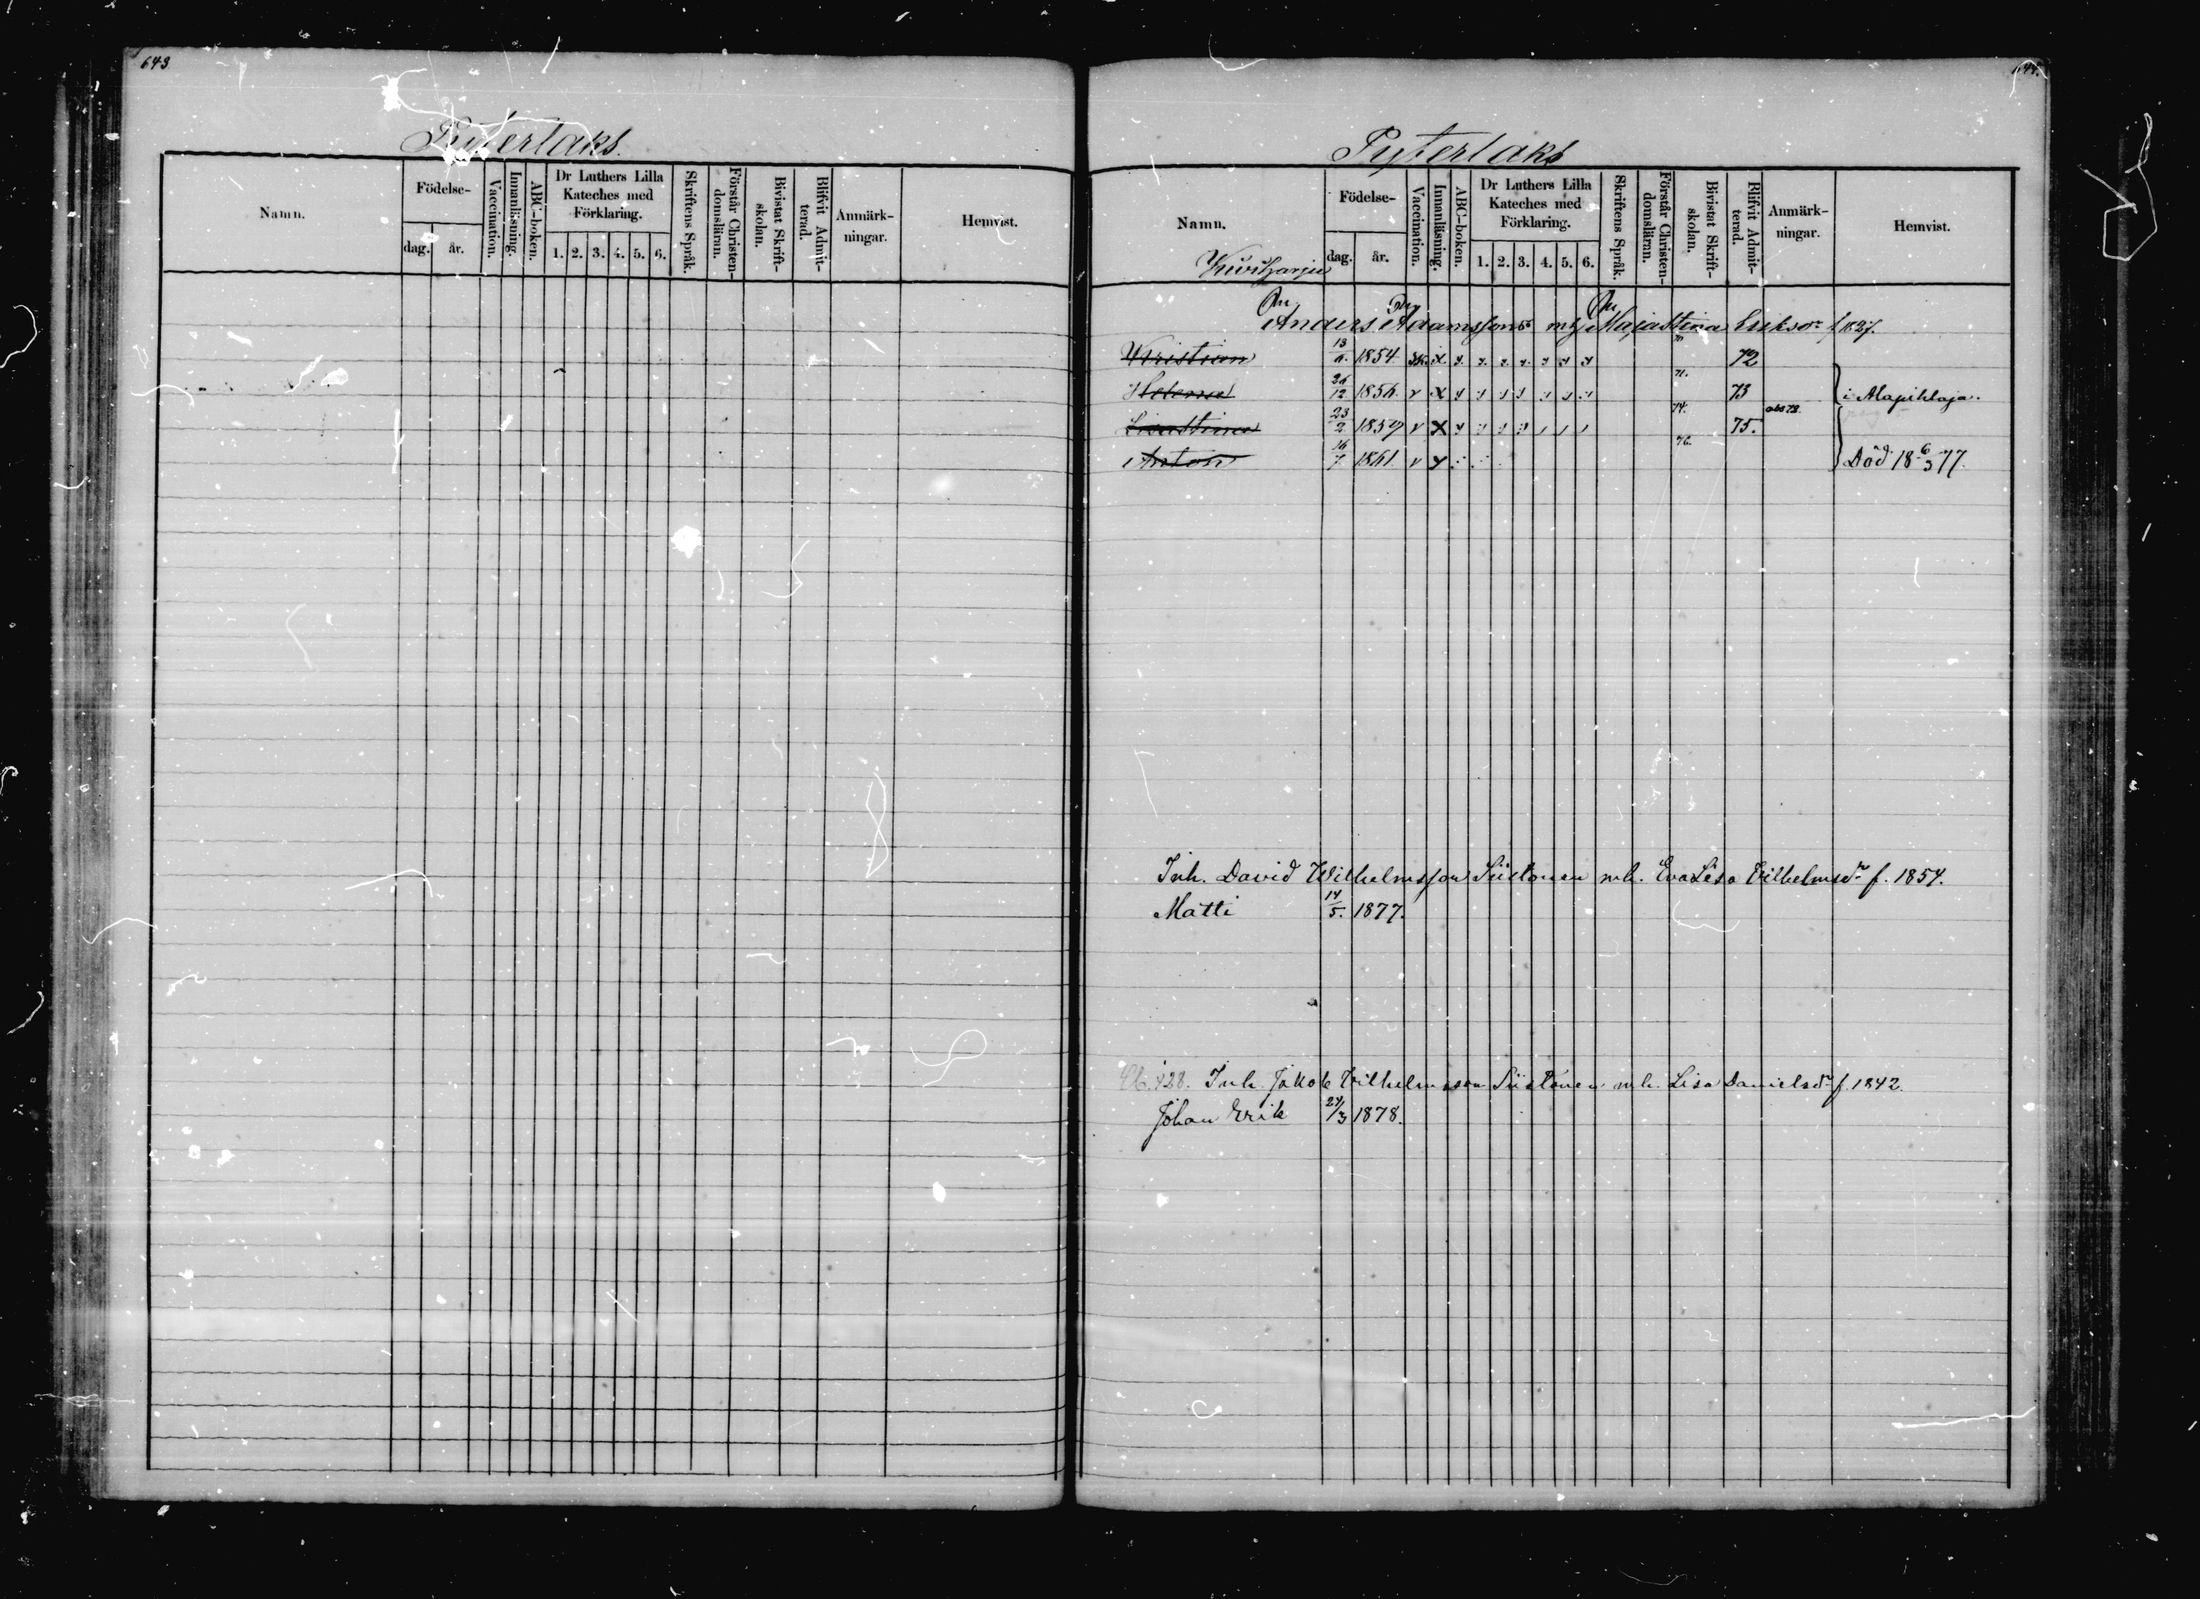 643
Pyterlaks.
Namn.
Födelse-
dag.
år.
Vaccination.
Innanläsning.
ABC-boken.
Dr Luthers Lilla
Kateches med
Förklaring.
1. 2. 3. 4. 5. 6.
Skriftens Språk.
Förstår Christen-
domsläran.
Bivistat Skrift-
skolan.
Blifvit Admit-
terad.
Anmärk-
ningar.
Hemvist.
644.
Pyterlaks
Namn.
Födelse-
dag.
år.
Vaccination.
Innanläsning.
ABC-boken.
Dr Luthers Lilla
Kateches med
Förklaring.
1. 2. 3. 4. 5. 6.
Skriftens Språk.
Förstår Christen-
domsläran.
Bivistat Skrift-
skolan.
Blifvit Admit-
terad.
Anmärk-
ningar.
Hemvist.
Anders Adamsson mh Majastina Eriksdr f 1827.
Kristian 1854 72
Helena 26/12 1856 v x 71. 73 i Alapihlaja.
23/2 1859 v x 74. 75.
Anton 16/7 1861 v 76. Död 18 6/3 77.
Inh. David Wilhelmsson Siistonen mh. Eva Lisa Vilhelmsdr f. 1854.
Matti 14/5. 1877.
428. Inh. Jakob Vilhelmsson Siistonen mh. Lisa Danielsdr f. 1842.
Johan Erik 24/3 1878.